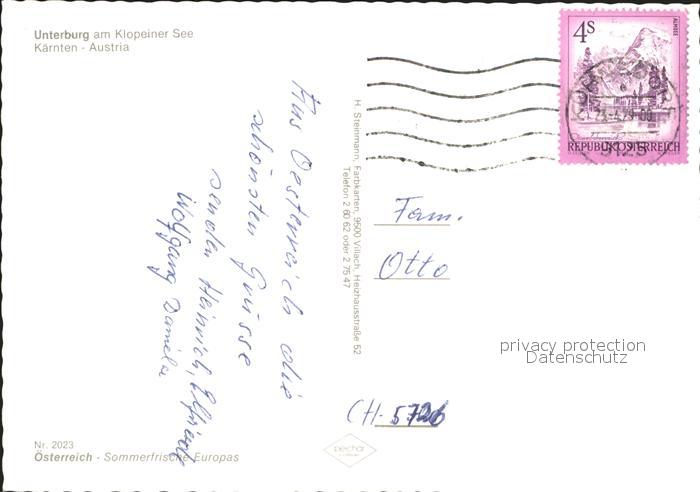 Unterburg am Klopeiner See
Kärnten - Austria
Aus Oesterreich die
schönsten Grüsse
senden Heinrich, Elfriede
Wolfgang Daniela
H. Steinmann, Farbkarten, 9500 Villach, Heizhausstraße 52
Telefon 2 60 62 oder 2 75 47
4S
ALMSEE
REPUBLIK ÖSTERREICH
Fam.
Otto
privacy protection
Datenschutz
CH-
Nr. 2023
Österreich - Sommerfrische Europas